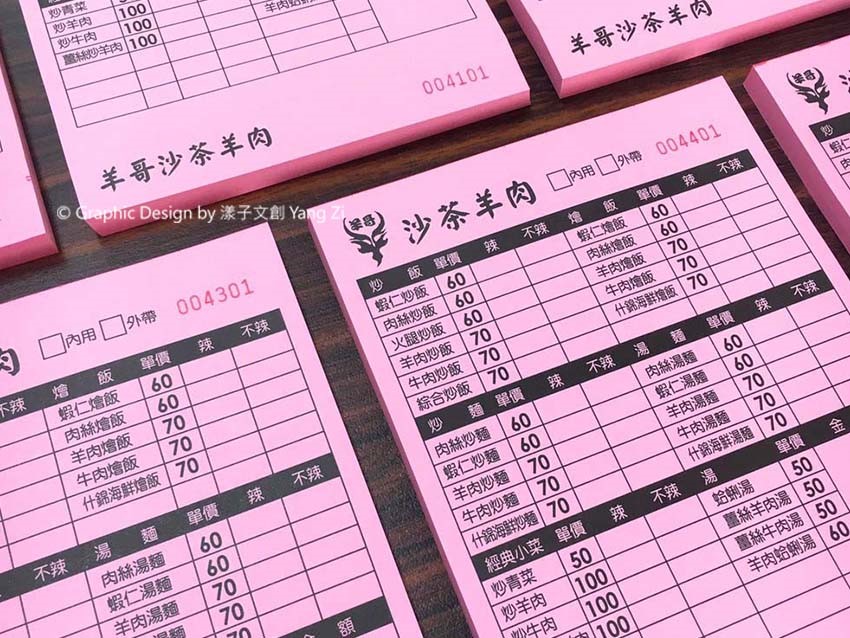 炒青菜 100
炒羊肉 100
炒牛肉 100
薑絲炒羊肉 100
004101
羊哥沙茶羊肉
羊哥沙茶羊肉
© Graphic Design by 漾子文創 Yang Zi
肉 內用 外帶 004301
不辣 燴飯 單價 辣 不辣
蝦仁燴飯 60
肉絲燴飯 60
羊肉燴飯 70
牛肉燴飯 70
什錦海鮮燴飯 70
不辣 湯麵 單價 辣 不辣
肉絲湯麵 60
蝦仁湯麵 60
羊肉湯麵 70
牛肉湯麵 70
金額
羊哥 沙茶羊肉 內用 外帶 004401
炒飯 單價 辣 不辣 燴飯 單價 辣 不辣
蝦仁炒飯 60 蝦仁燴飯 60
肉絲炒飯 60 肉絲燴飯 60
火腿炒飯 60 羊肉燴飯 70
羊肉炒飯 70 牛肉燴飯 70
牛肉炒飯 70 什錦海鮮燴飯 70
綜合炒飯 70
炒麵 單價 辣 不辣 湯麵 單價 辣 不辣
肉絲炒麵 60 肉絲湯麵 60
蝦仁炒麵 60 蝦仁湯麵 60
羊肉炒麵 70 羊肉湯麵 70
牛肉炒麵 70 牛肉湯麵 70
什錦海鮮炒麵 70 什錦海鮮湯麵 70
經典小菜 單價 辣 不辣 湯 單價 金
炒青菜 50 蛤蜊湯 50
炒羊肉 100 薑絲羊肉湯 50
炒牛肉 100 薑絲牛肉湯 50
100 羊肉蛤蜊湯 60
羊哥 沙
炒
蝦仁
肉絲